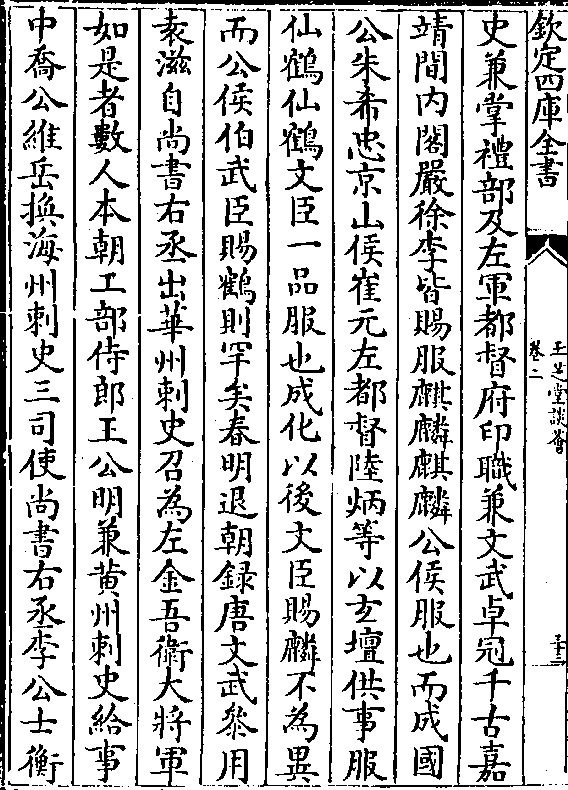 欽定四庫全書
玉芝堂談薈
卷二
史兼掌禮部及左軍都督府印職兼文武卓冠千古嘉
靖間内閣嚴徐李皆賜服麒麟麒麟公侯服也而成國
公朱希忠京山侯崔元左都督陸炳等以玄壇供事服
仙鶴仙鶴文臣一品服也成化以後文臣賜麟不為異
而公侯伯武臣賜鶴則罕矣春明退朝録唐文武叅用
袁滋自尚書右丞出華州刺史召為左金吾衛大將軍
如是者數人本朝工部侍郎王公明兼黄州刺史給事
中喬公維岳換海州刺史三司使尚書右丞李公士衡